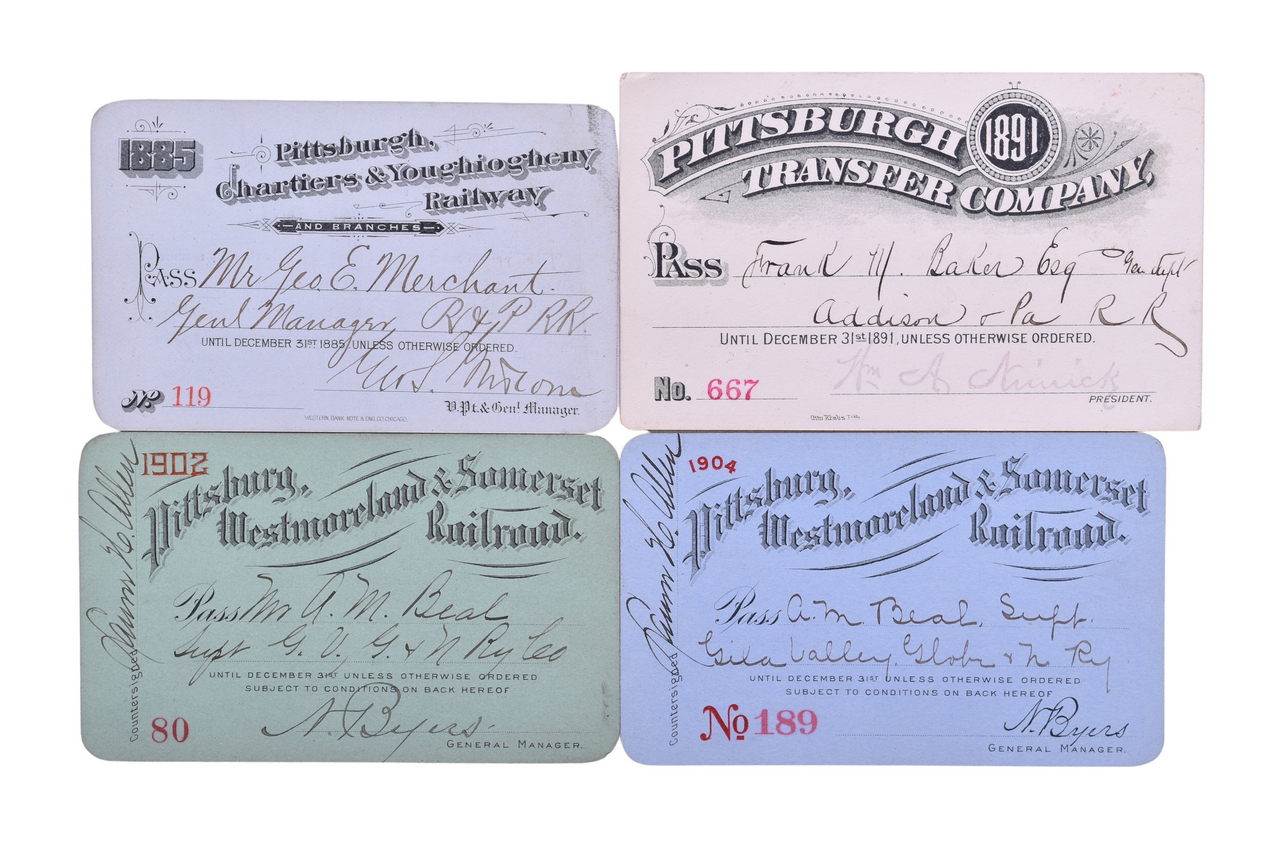 1885
Pittsburgh,
Chartiers & Youghiogheny
Railway
AND BRANCHES
PASS Mr Geo. E. Merchant.
Genl Manager, R & P RR.
UNTIL DECEMBER 31ST 1885, UNLESS OTHERWISE ORDERED.
Geo S.
No. 119
V. Pt. & Genl. Manager.
WESTERN BANK NOTE & ENG. CO. CHICAGO.
PITTSBURGH 1891
TRANSFER COMPANY,
PASS Frank M. Baker Esq
Addison & Pa R R
UNTIL DECEMBER 31st 1891, UNLESS OTHERWISE ORDERED.
Wm A Nimick
No. 667
PRESIDENT.
1902
Pittsburg,
Westmoreland & Somerset
Railroad.
Pass Mr A. M. Beal
Supt G. V. G. & N Ry Co
UNTIL DECEMBER 31ST UNLESS OTHERWISE ORDERED
SUBJECT TO CONDITIONS ON BACK HEREOF
N. Byers.
80
GENERAL MANAGER.
Countersigned Allen
1904
Pittsburg,
Westmoreland & Somerset
Railroad.
Pass A. M. Beal, Supt.
Gila Valley, Globe & N. Ry
UNTIL DECEMBER 31ST UNLESS OTHERWISE ORDERED
SUBJECT TO CONDITIONS ON BACK HEREOF
No 189
N. Byers
GENERAL MANAGER.
Countersigned Allen